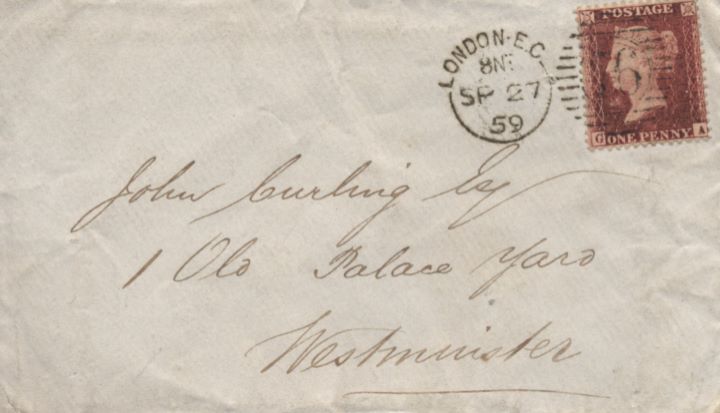 POSTAGE
LONDON·E.C
8NT
SP 27
59
G ONE PENNY A
John Curling Esq
1 Old Palace Yard
Westminster